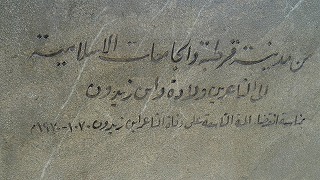 من مدينة قرطبة والجامعات الاسلامية
الى الشاعرين ولادة وابن زيدون
بمناسبة انقضاء المئة التاسعة على وفاة الشاعر ابن زيدون ١٠٧٠-١٩٧٠م